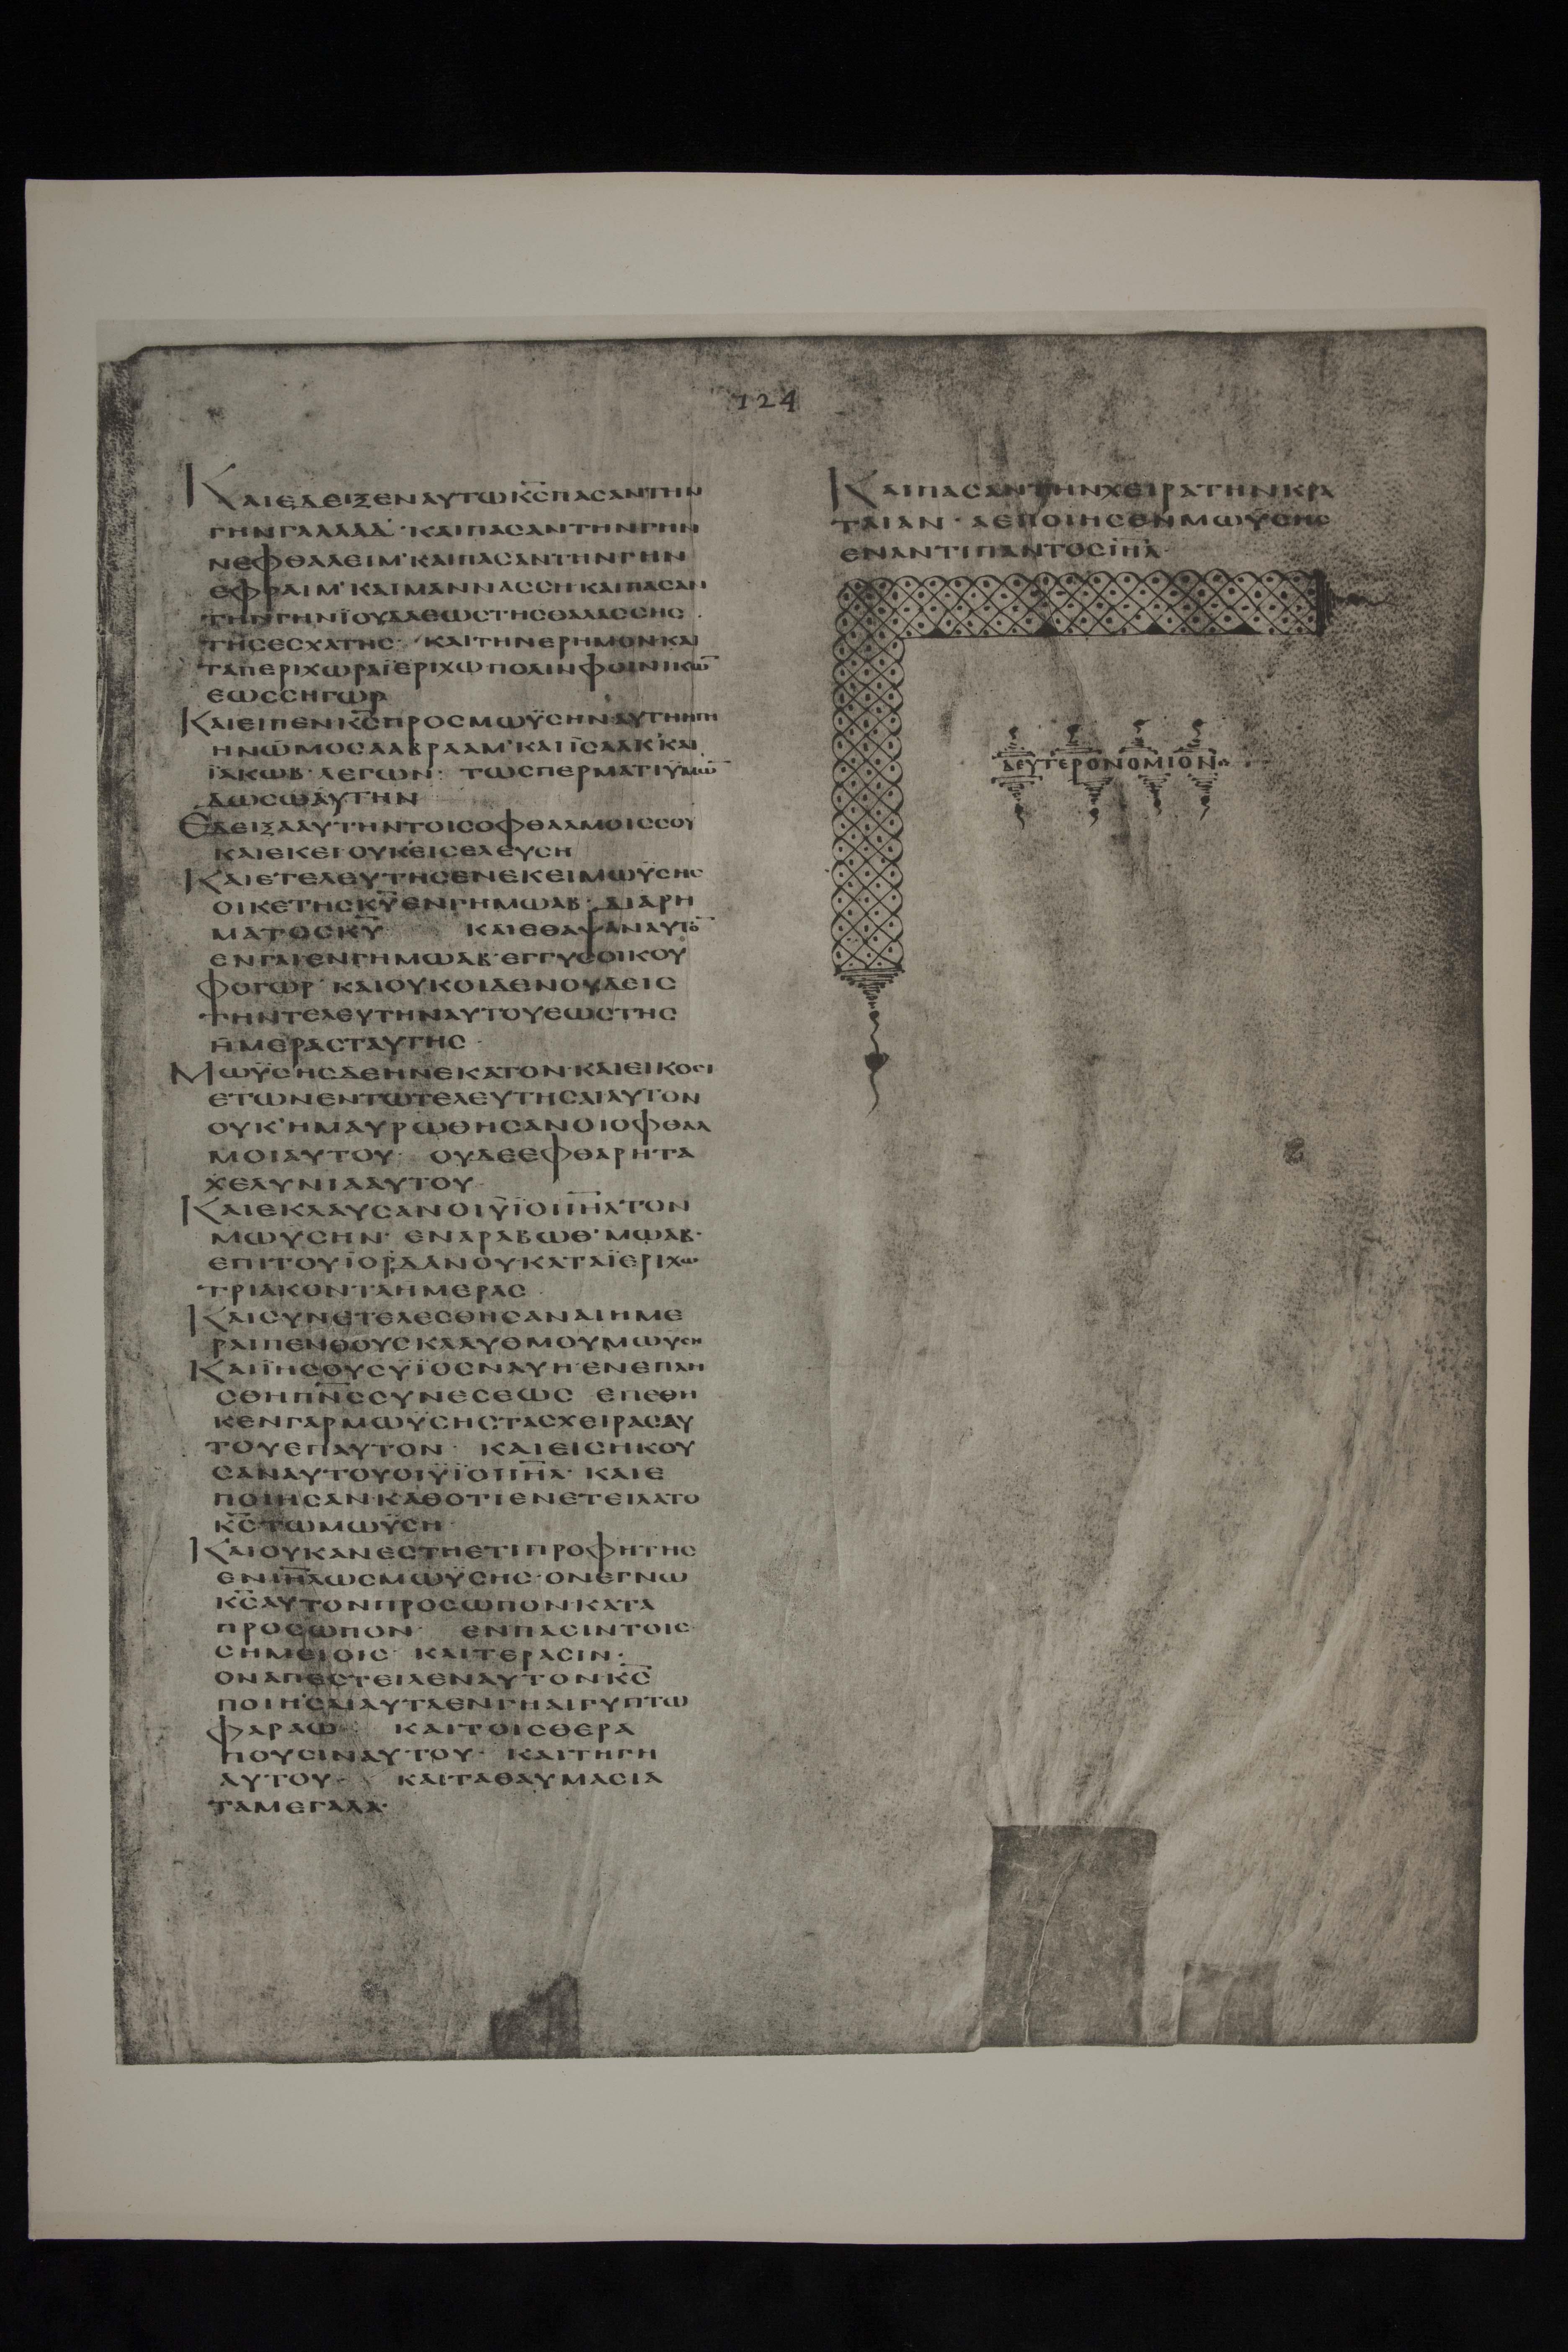 124
ΚΑΙΕΔΕΙΞΕΝΑΥΤΩΚ̅Σ̅ΠΑΣΑΝΤΗΝ
ΓΗΝΓΑΛΑΑΔ·ΚΑΙΠΑΣΑΝΤΗΝΓΗΝ
ΝΕΦΘΑΛΕΙΜ·ΚΑΙΠΑΣΑΝΤΗΝΓΗΝ
ΕΦΡΑΙΜ·ΚΑΙΜΑΝΝΑΣΣΗΚΑΙΠΑΣΑΝ
ΤΗΝΓΗΝΪΟΥΔΑΕΩΣΤΗΣΘΑΛΑΣΣΗΣ
ΤΗΣΕΣΧΑΤΗΣ· ΚΑΙΤΗΝΕΡΗΜΟΝΚΑΙ
ΤΑΠΕΡΙΧΩΡΑΪΕΡΙΧΩΠΟΛΙΝΦΟΙΝΙΚΩ̅
ΕΩΣΣΗΓΩΡ
ΚΑΙΕΙΠΕΝΚ̅Σ̅ΠΡΟΣΜΩΫΣΗΝΑΥΤΗΗΓΗ
ΗΝΩΜΟΣΑΑΒΡΑΑΜ·ΚΑΙΪΣΑΑΚ·ΚΑΙ
ΪΑΚΩΒ·ΛΕΓΩΝ· ΤΩΣΠΕΡΜΑΤΙΫΜΩ̅
ΔΩΣΩΑΥΤΗΝ
ΕΔΕΙΞΑΑΥΤΗΝΤΟΙΣΟΦΘΑΛΜΟΙΣΣΟΥ
ΚΑΙΕΚΕΙΟΥΚΕΙΣΕΛΕΥΣΗ
ΚΑΙΕΤΕΛΕΥΤΗΣΕΝΕΚΕΙΜΩΫΣΗΣ
ΟΙΚΕΤΗΣΚ̅Υ̅ΕΝΓΗΜΩΑΒ·ΔΙΑΡΗ
ΜΑΤΟΣΚ̅Υ̅ ΚΑΙΕΘΑΨΑΝΑΥΤΟ̅
ΕΝΓΑΙΕΝΓΗΜΩΑΒ·ΕΓΓΥΣΟΙΚΟΥ
ΦΟΓΩΡ·ΚΑΙΟΥΚΟΙΔΕΝΟΥΔΕΙΣ
ΤΗΝΤΕΛΕΥΤΗΝΑΥΤΟΥΕΩΣΤΗΣ
ΗΜΕΡΑΣΤΑΥΤΗΣ·
ΜΩΫΣΗΣΔΕΗΝΕΚΑΤΟΝ·ΚΑΙΕΙΚΟΣΙ
ΕΤΩΝΕΝΤΩΤΕΛΕΥΤΗΣΑΙΑΥΤΟΝ
ΟΥΚ'ΗΜΑΥΡΩΘΗΣΑΝΟΙΟΦΘΑΛ
ΜΟΙΑΥΤΟΥ· ΟΥΔΕΕΦΘΑΡΗΤΑ
ΧΕΛΥΝΙΑΑΥΤΟΥ·
ΚΑΙΕΚΛΑΥΣΑΝΟΙΫΪΟΙΙ̅Η̅Λ̅ΤΟΝ
ΜΩΫΣΗΝ· ΕΝΑΡΑΒΩΘ·ΜΩΑΒ·
ΕΠΙΤΟΥΪΟΡΔΑΝΟΥΚΑΤΑΪΕΡΙΧΩ
ΤΡΙΑΚΟΝΤΑΗΜΕΡΑΣ·
ΚΑΙΣΥΝΕΤΕΛΕΣΘΗΣΑΝΑΙΗΜΕ
ΡΑΙΠΕΝΘΟΥΣΚΛΑΥΘΜΟΥΜΩΥΣΗ
ΚΑΙΪΗΣΟΥΣΫΪΟΣΝΑΥΗ·ΕΝΕΠΛΗ
ΣΘΗΠ̅Ν̅Σ̅ΣΥΝΕΣΕΩΣ ΕΠΕΘΗ
ΚΕΝΓΑΡΜΩΫΣΗΣΤΑΣΧΕΙΡΑΣΑΥ
ΤΟΥΕΠΑΥΤΟΝ· ΚΑΙΕΙΣΗΚΟΥ
ΣΑΝΑΥΤΟΥΟΙΫΪΟΙΙ̅Η̅Λ̅· ΚΑΙΕ
ΠΟΙΗΣΑΝ·ΚΑΘΟΤΙΕΝΕΤΕΙΛΑΤΟ
Κ̅Σ̅ΤΩΜΩΫΣΗ·
ΚΑΙΟΥΚΑΝΕΣΤΗΕΤΙΠΡΟΦΗΤΗΣ
ΕΝΙ̅Η̅Λ̅ΩΣΜΩΫΣΗΣ·ΟΝΕΓΝΩ
Κ̅Σ̅ΑΥΤΟΝΠΡΟΣΩΠΟΝΚΑΤΑ
ΠΡΟΣΩΠΟΝ· ΕΝΠΑΣΙΝΤΟΙΣ
ΣΗΜΕΙΟΙΣ· ΚΑΙΤΕΡΑΣΙΝ·
ΟΝΑΠΕΣΤΕΙΛΕΝΑΥΤΟΝΚ̅Σ̅
ΠΟΙΗΣΑΙΑΥΤΑΕΝΓΗΑΙΓΥΠΤΩ
ΦΑΡΑΩ· ΚΑΙΤΟΙΣΘΕΡΑ
ΠΟΥΣΙΝΑΥΤΟΥ· ΚΑΙΤΗΓΗ
ΑΥΤΟΥ· ΚΑΙΤΑΘΑΥΜΑΣΙΑ
ΤΑΜΕΓΑΛΑ·
ΚΑΙΠΑΣΑΝΤΗΝΧΕΙΡΑΤΗΝΚΡΑ
ΤΑΙΑΝ· ΑΕΠΟΙΗΣΕΝΜΩΥΣΗΣ
ΕΝΑΝΤΙΠΑΝΤΟΣΙ̅Η̅Λ̅·
ΔΕΥΤΕΡΟΝΟΜΙΟΝ